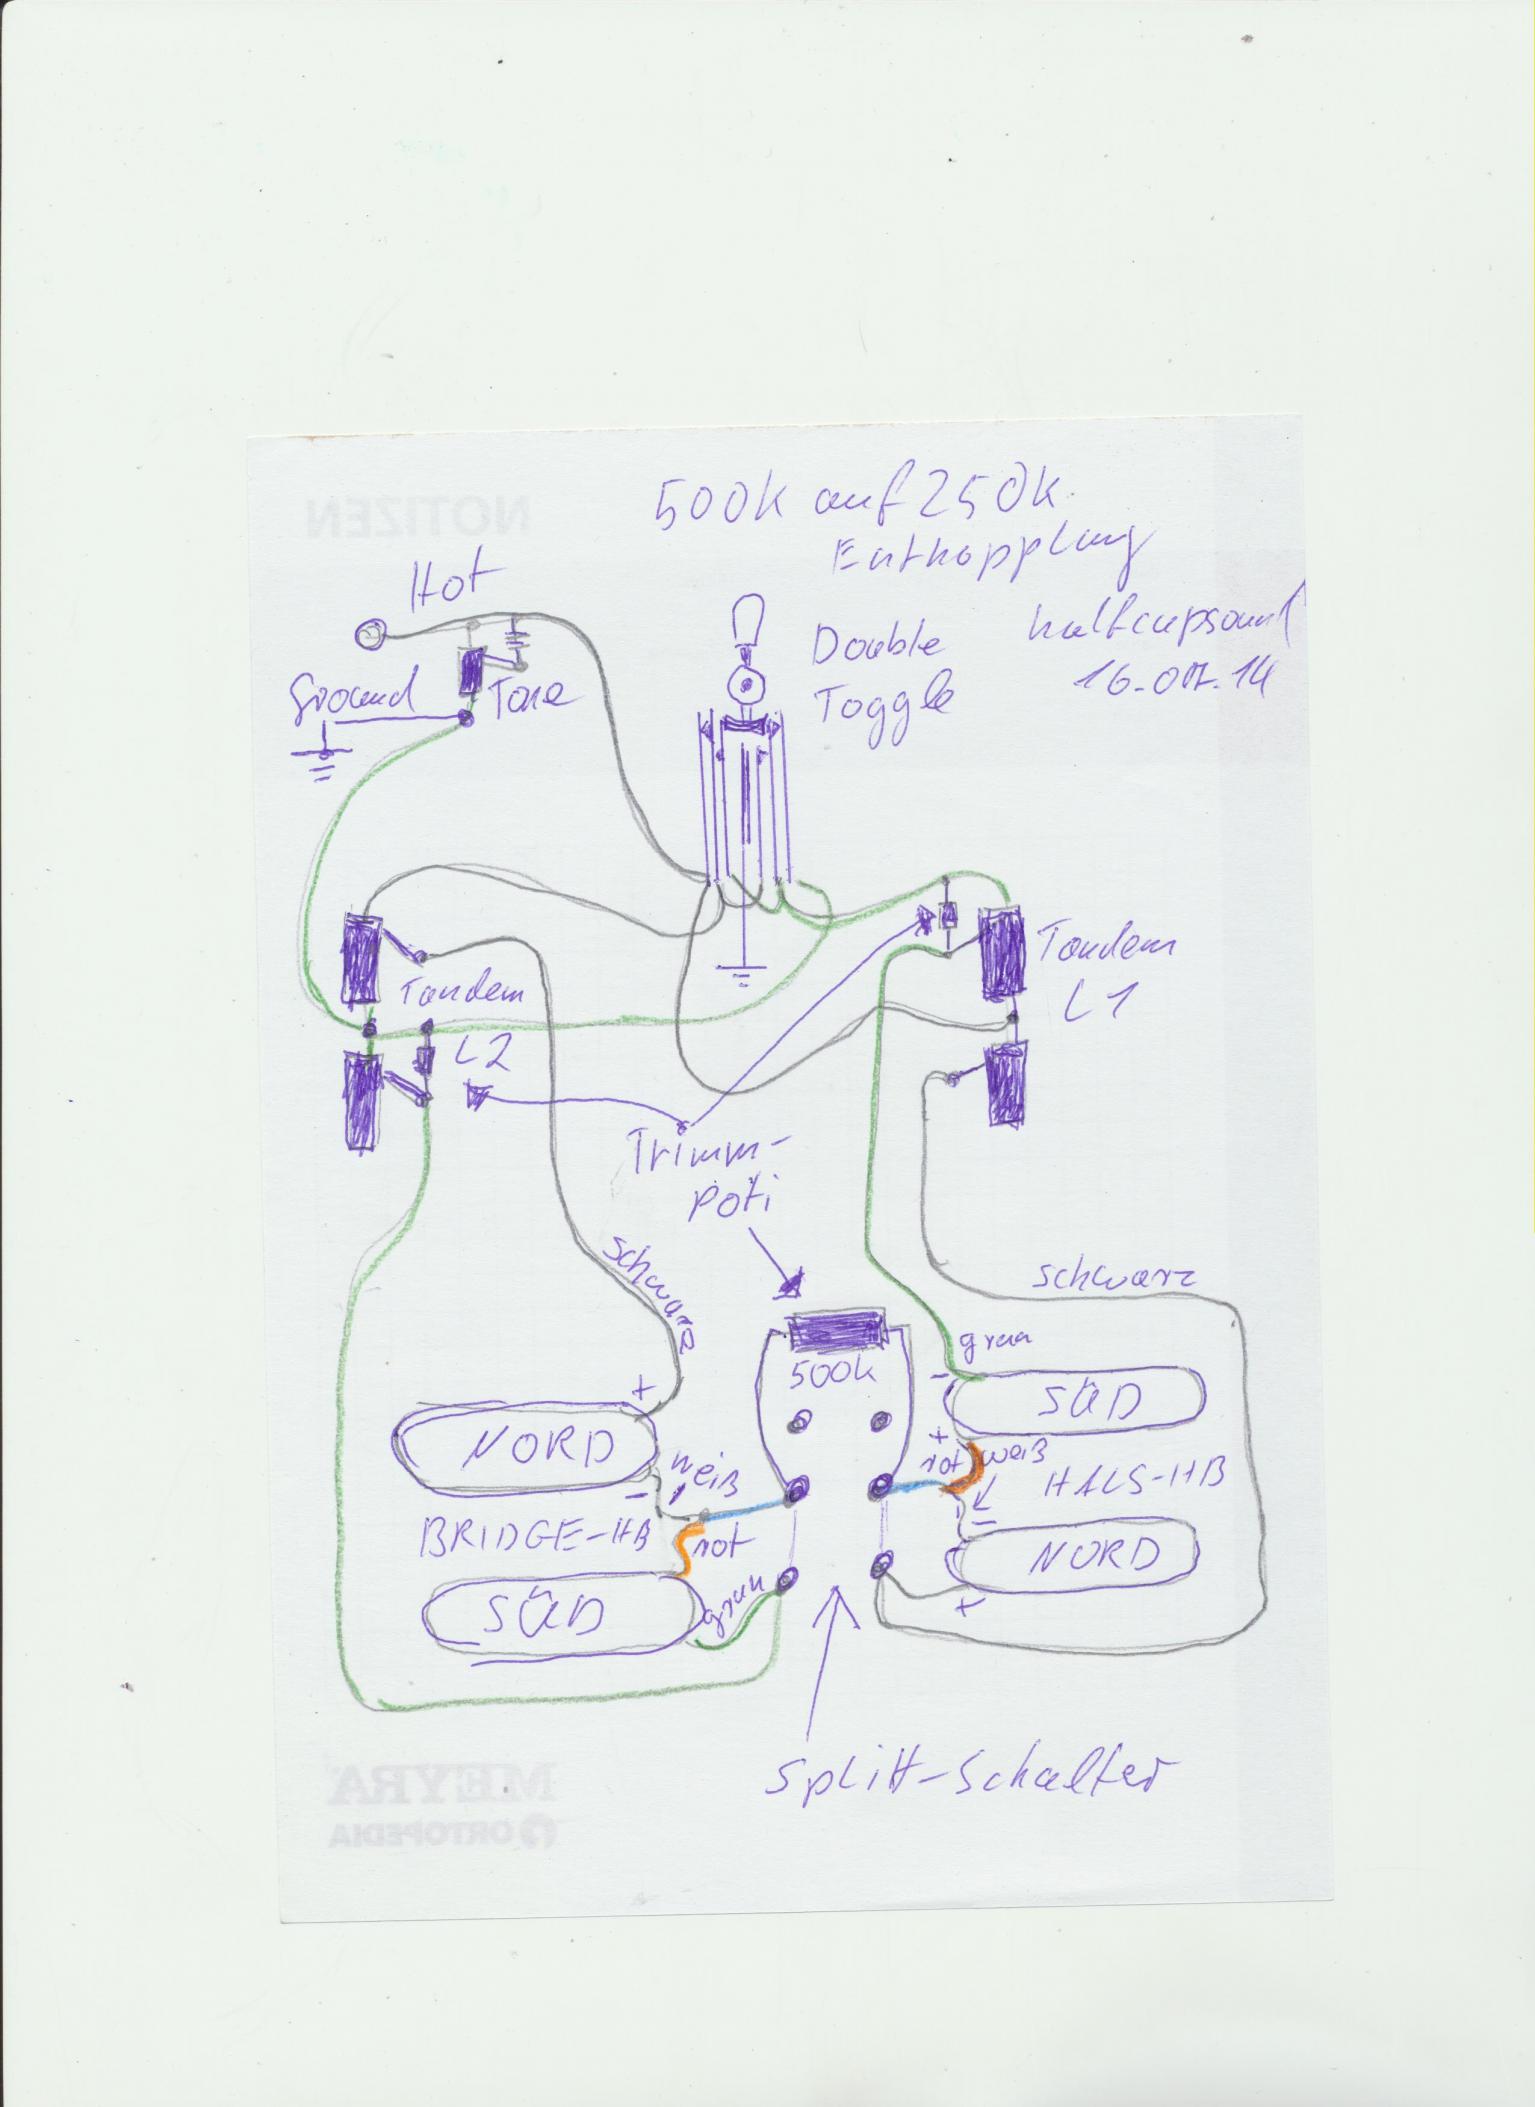 NOTIZEN
500k auf 250k
Enthopplung
Hot
halfcupsound
Double
Toggle
16.Okt.14
Ground
Tone
Tandem
L1
Tandem
L2
Trimm-
poti
schwarz
schwarz
500k
grün
-
SÜD
+
NORD
+
rot
weiß
weiß
-
HALS-HB
-
BRIDGE-HB
rot
NORD
+
SÜD
grün
Splitt-Schalter
MEYRA
ORTOPEDIA